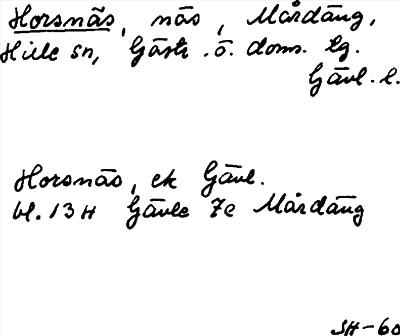 Horsnäs, näs, Mårdäng,
Hille sn, Gästr. ö. doms. lg.
Gävl. l.
Horsnäs, ek Gävl.
bl. 13 H Gävle 7e Mårdäng
SH-60